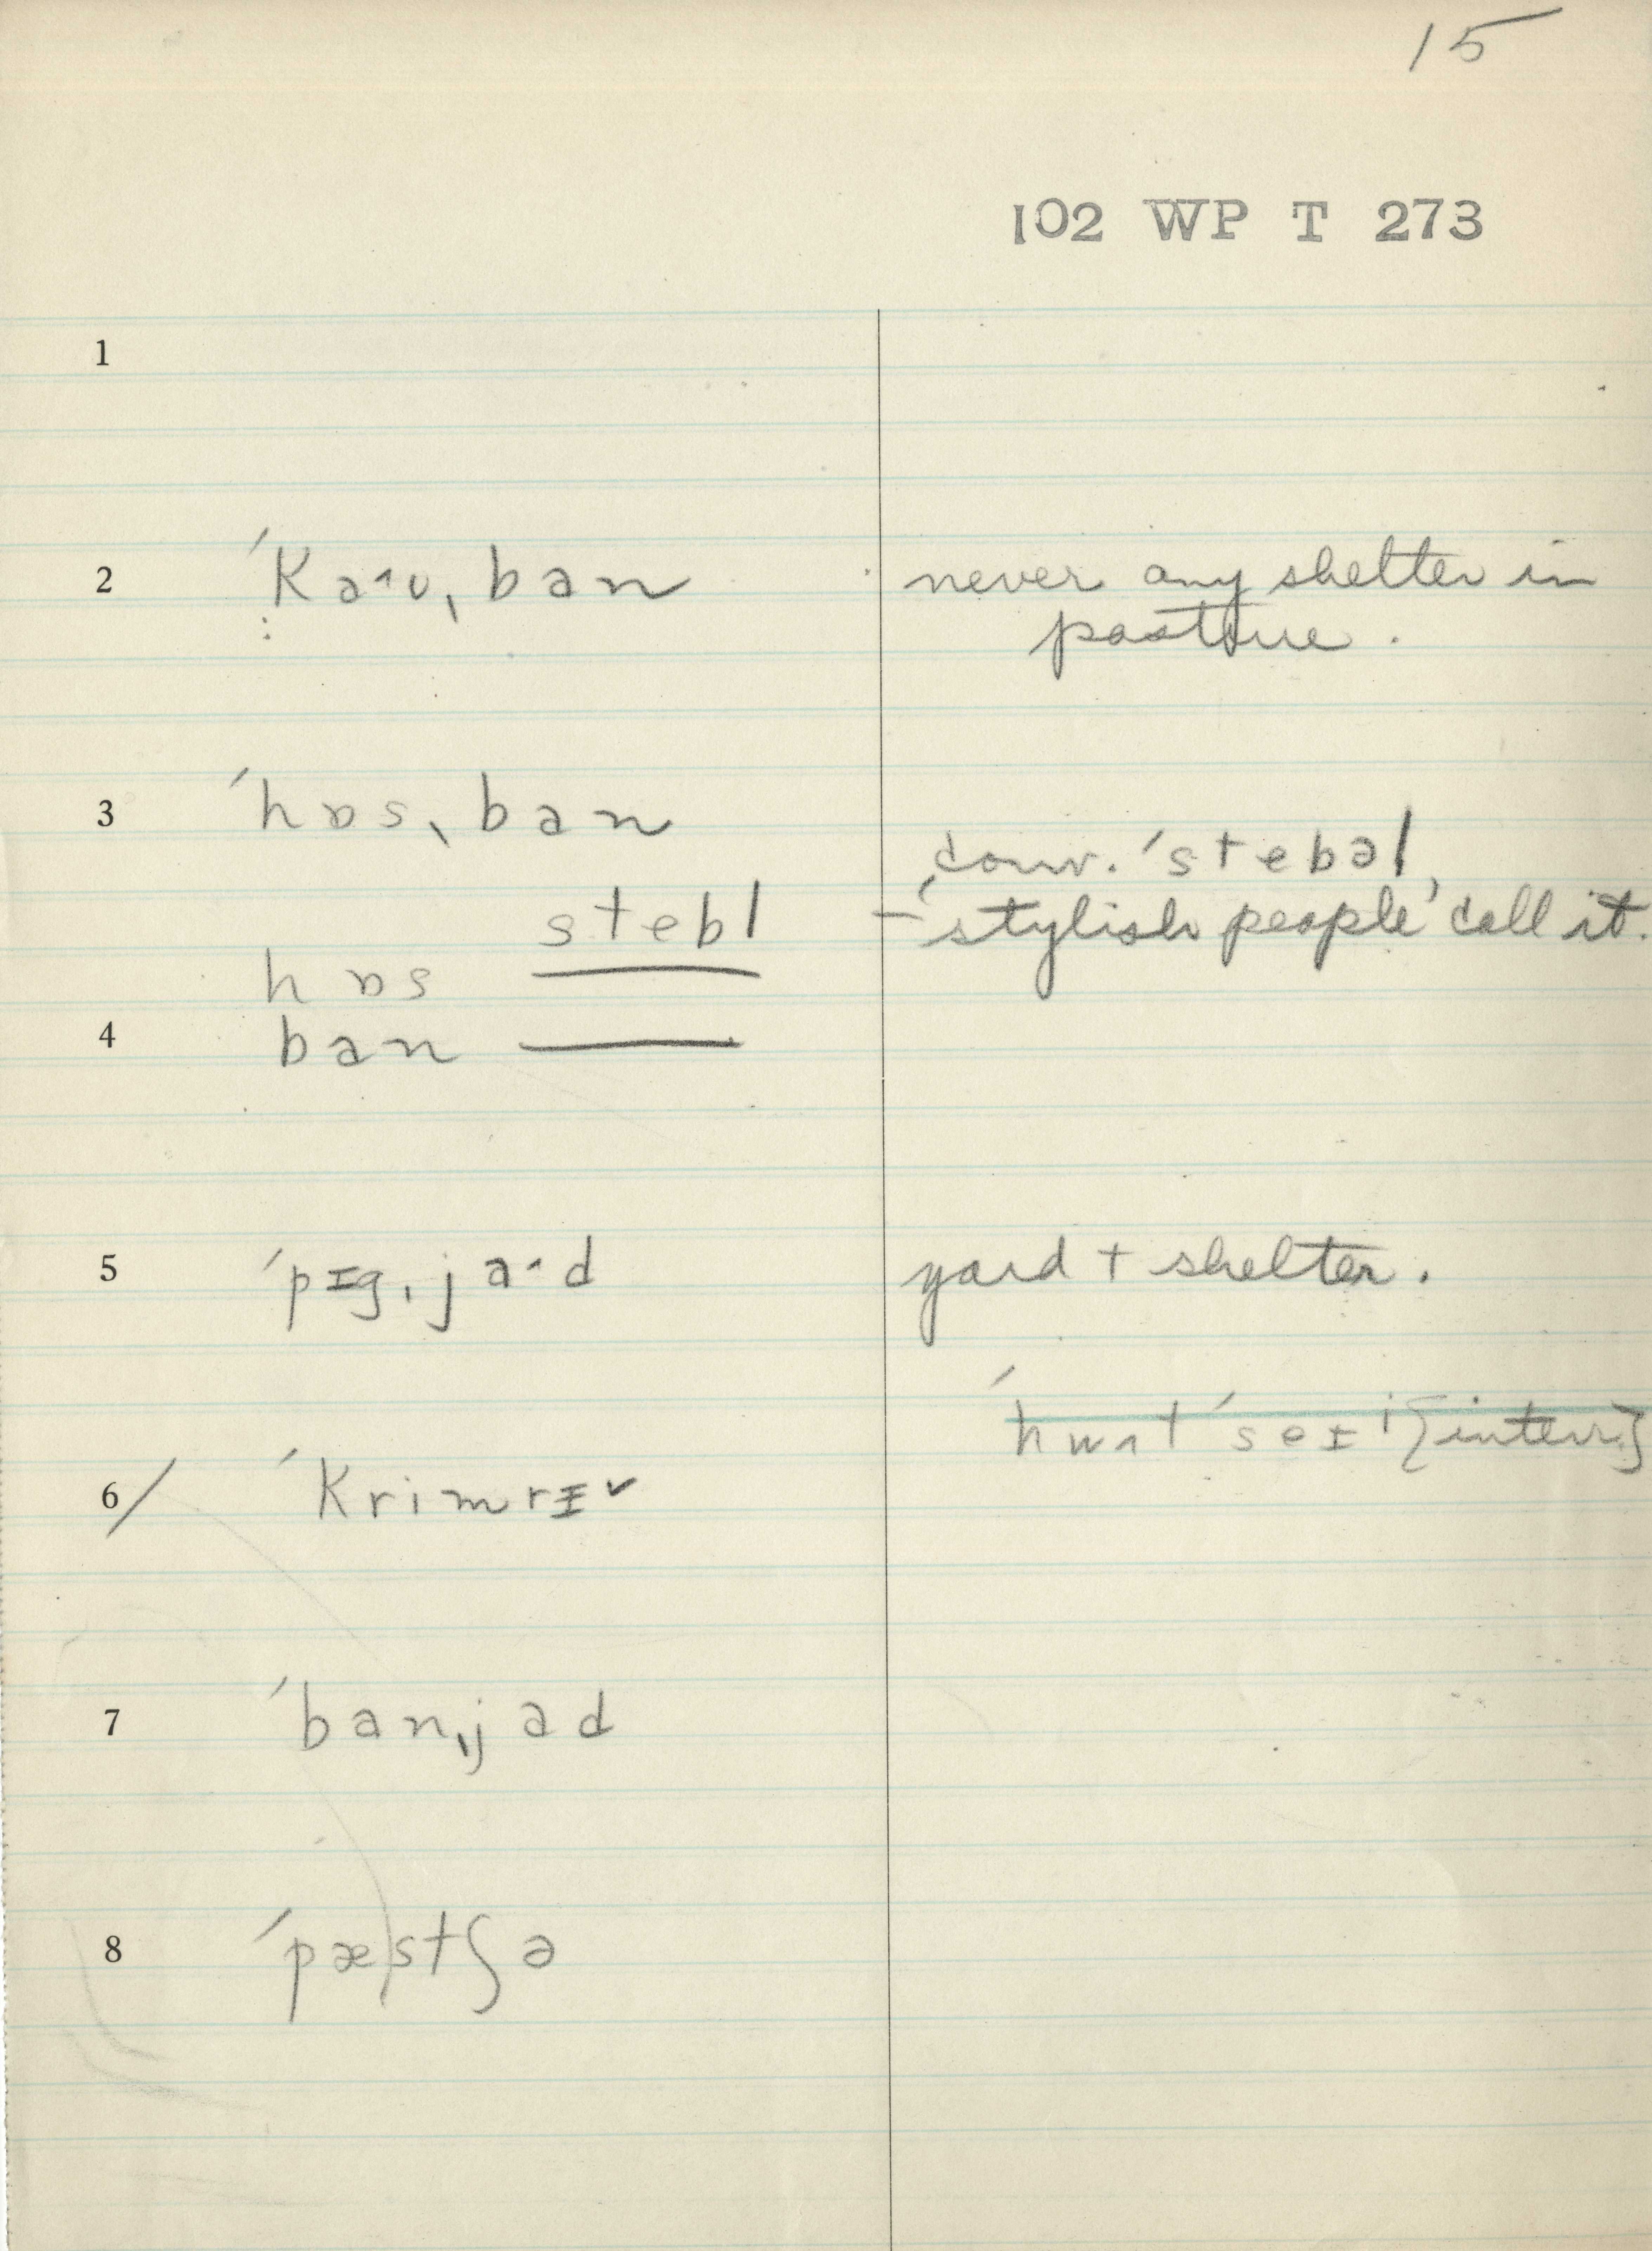 15
102 WP T 273
1
2 ˈKaˑʊˌban never any shelter in
pasture.
3 ˈhɒsˌban conv. ˈstebəl,
stebl – 'stylish people' call it.
hɒs
4 ban
5 ˈpɪgˌjaˑd yard + shelter.
ˈhwʌt ˈseɪ {interv.}
6/ ˈKrimrɪ ˇ
7 ˈbanˌjad
8 ˈpæstʃə